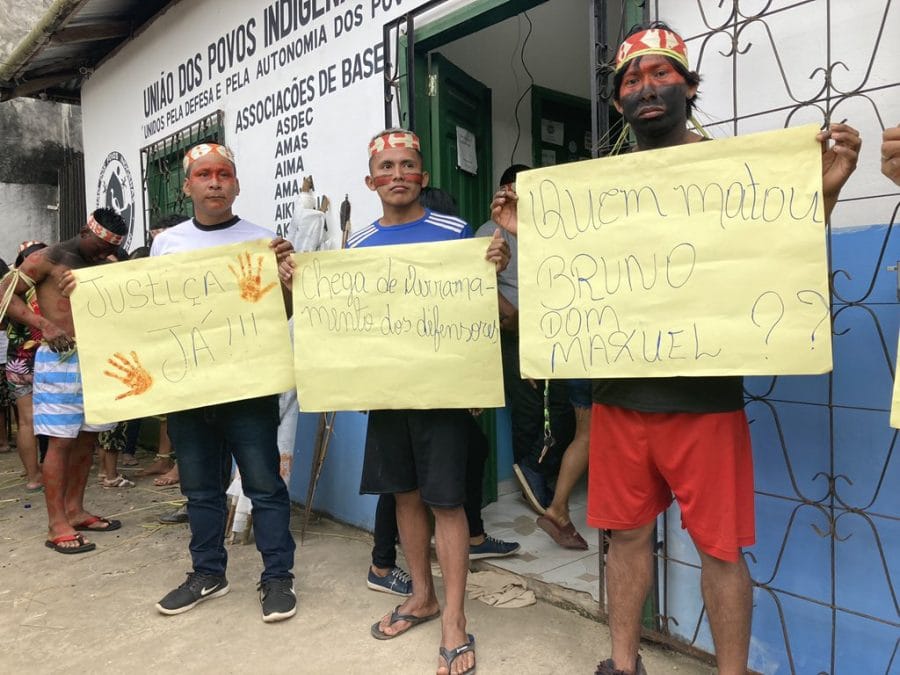 UNIÃO DOS POVOS INDÍGENAS
UNIDOS PELA DEFESA E PELA AUTONOMIA DOS POVOS
ASSOCIAÇÕES DE BASE
ASDEC
AMAS
AIMA
AMA
AKI
JUSTIÇA
JÁ!!!
Chega de
mento dos defensores
Quem matou
BRUNO
DOM
MAXUEL ? ??